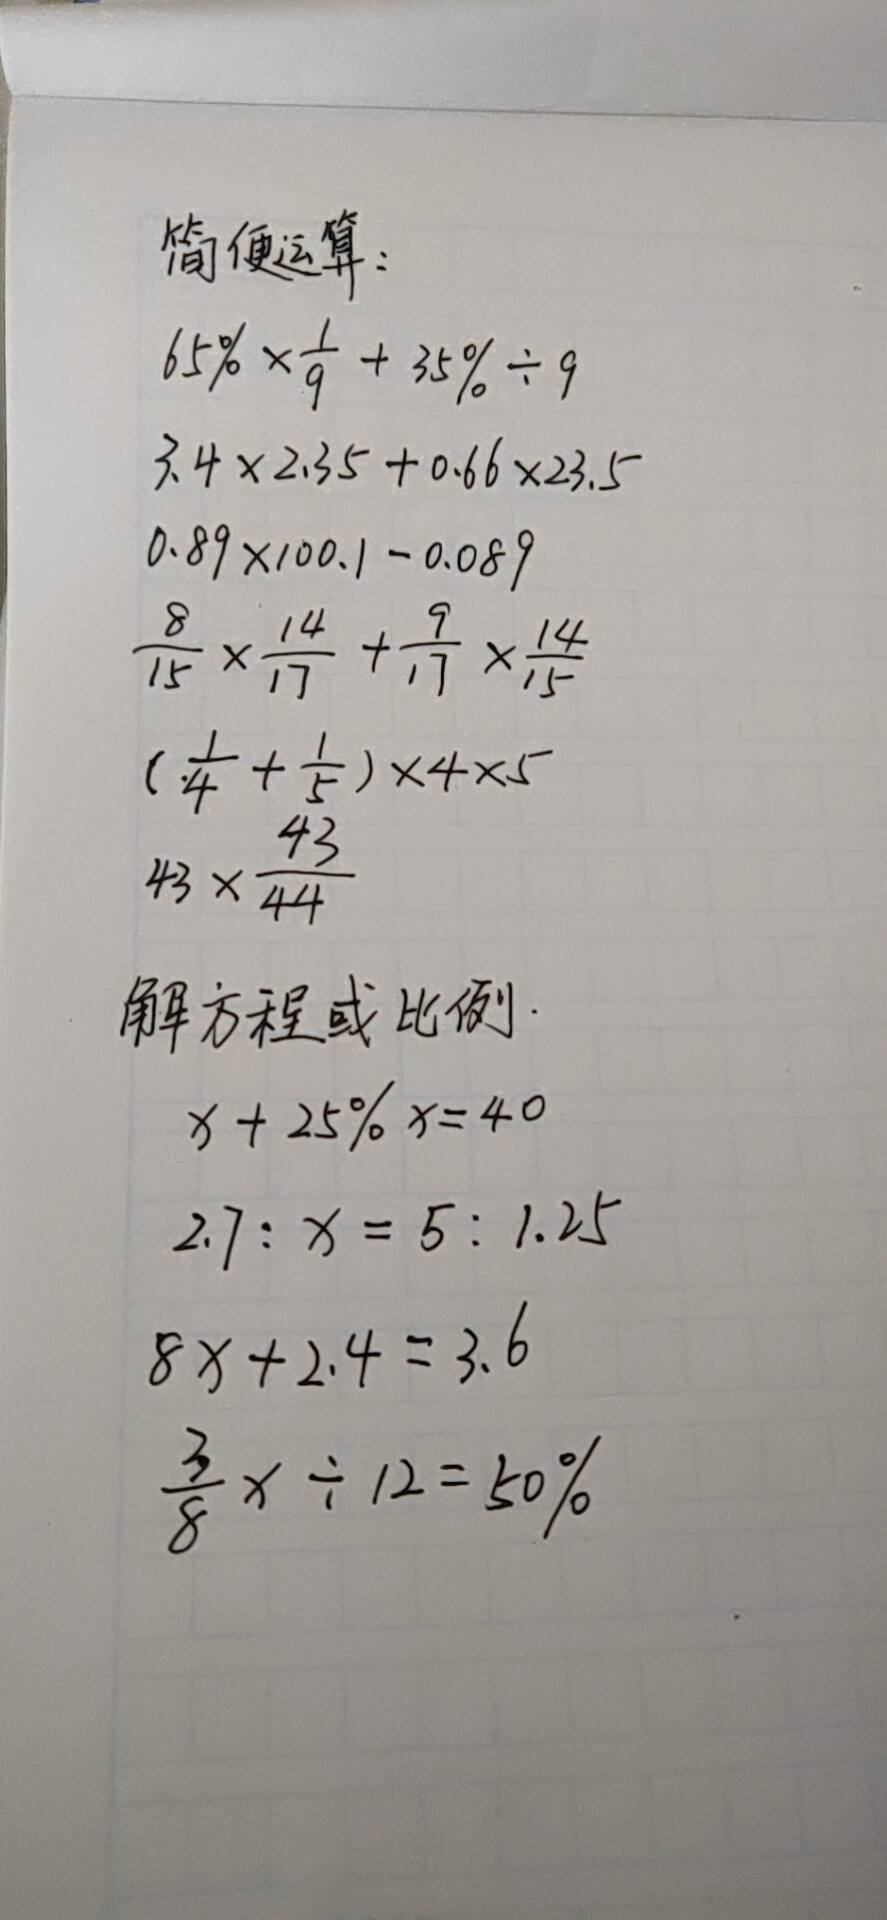 简便运算:
65% × 1/9 + 35% ÷ 9
3.4 × 2.35 + 0.66 × 23.5
0.89 × 100.1 - 0.089
8/15 × 14/17 + 9/17 × 14/15
(1/4 + 1/5) × 4 × 5
43 × 43/44
解方程或比例.
x + 25% x = 40
2.7 : x = 5 : 1.25
8x + 2.4 = 3.6
3/8 x ÷ 12 = 50%